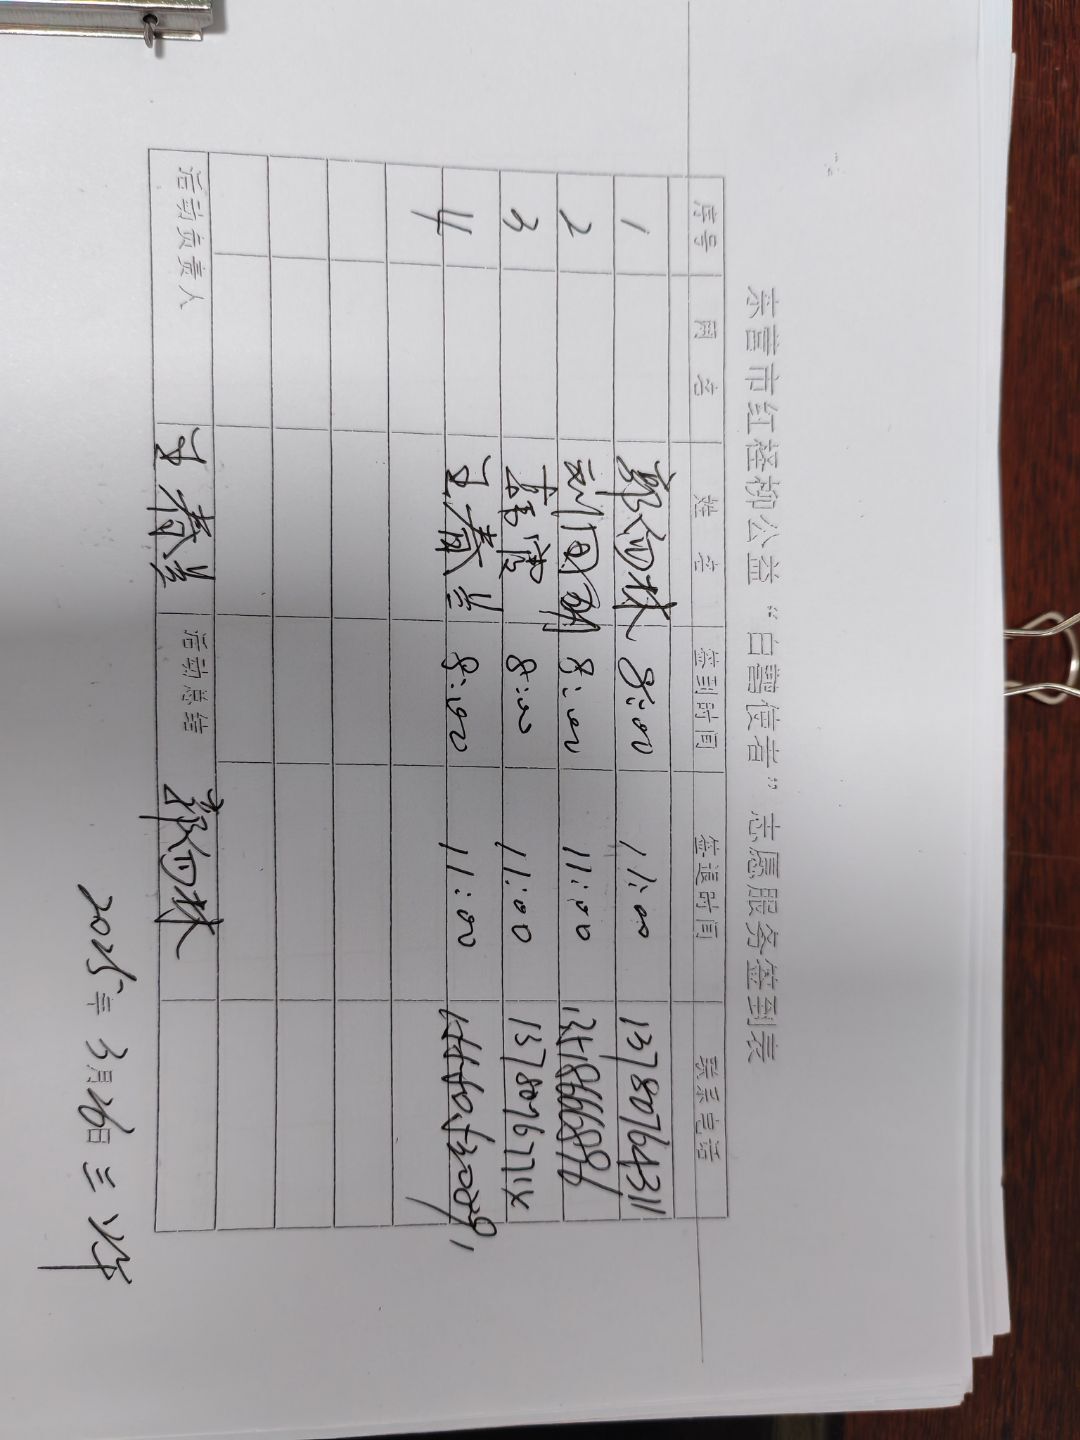 东营市红柽柳公益“白鹭使者”志愿服务签到表
序号 网名 姓名 签到时间 签退时间 联系电话
1 郭向林 8:00 11:00 13780764311
2 刘同明 8:00 11:00
3 8:00 11:00
4 王春兰 8:00 11:00
活动负责人 王春兰 活动总结 郭向林
2025年3月26日 三 上午